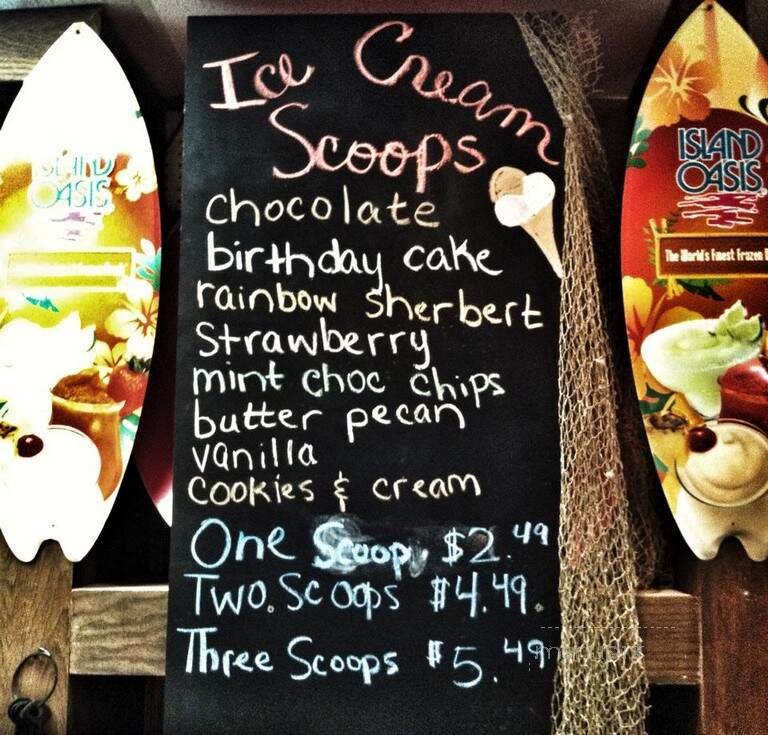 Ice Cream
Scoops
chocolate
birthday cake
rainbow sherbert
strawberry
mint choc chips
butter pecan
vanilla
cookies & cream
One Scoop $2.49
Two Scoops $4.49.
Three Scoops $5.49
ISLAND
OASIS
ISLAND
OASIS
The World's Finest Frozen